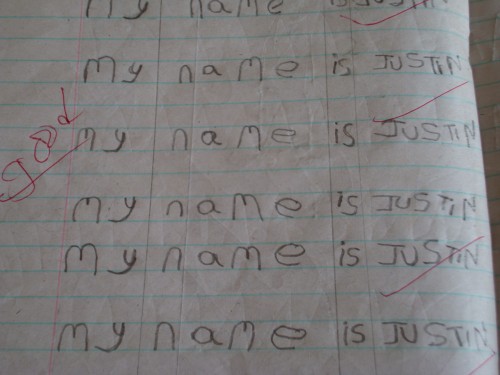 My name is JUSTIN
My name is JUSTIN
Good
My name is JUSTIN
My name is JUSTIN
My name is JUSTIN
My name is JUSTIN